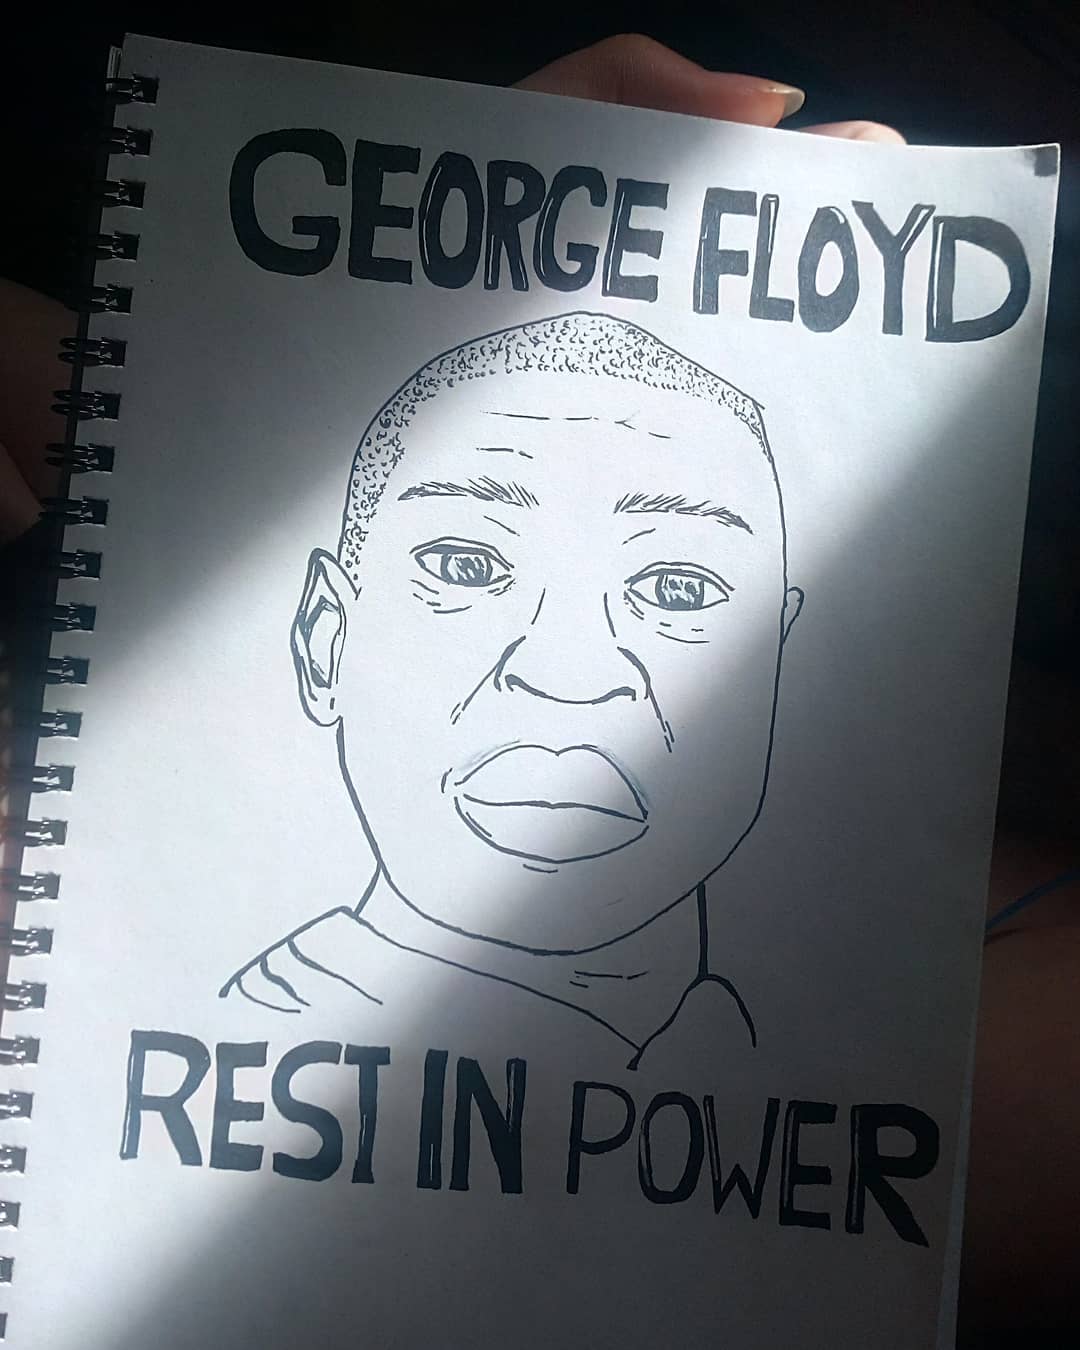 GEORGE FLOYD
REST IN POWER